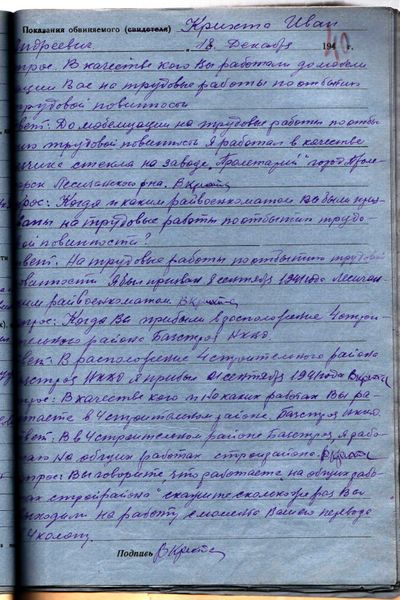 Показания обвиняемого (свидетеля) Крихта Иван
Андреевич 18 Декабря 194 г.
40
прос: В качестве кого Вы работали до мобели
зации Вас на трудовые работы по отбытию
трудовой повинности
вет: До мобелизации на трудовые работы по отбы
тию трудовой повинности я работал в качестве
стекла на заводе „Пролетарий" город
Лисичанского р-на.
прос: Когда и каким райвоенкоматом Вы были приз
ваны на трудовые работы по отбытию трудо
вой повинности?
вет: На трудовые работы по отбытию трудовой
повинности я был призван 8 сентября 1941 года Лисичан
ским райвоенкоматом
прос: Когда Вы прибыли в расположение 4 строи
тельного района Багстроя НКВД.
вет: В расположение 4 строительного района
Багстроя НКВД я прибыл 21 сентября 1941 года
прос: В качестве кого и на каких работах Вы ра
ботаете в 4 строительном районе Багстроя НКВД.
вет: В 4 строительном районе Багстроя я рабо
таю на общих работах стройрайона.
прос: Вы говорите что работаете „на общих рабо
тах стройрайона" скажите сколько раз Вы
выходили на работу с момента Вашего перевода
4 колону.
Подпись